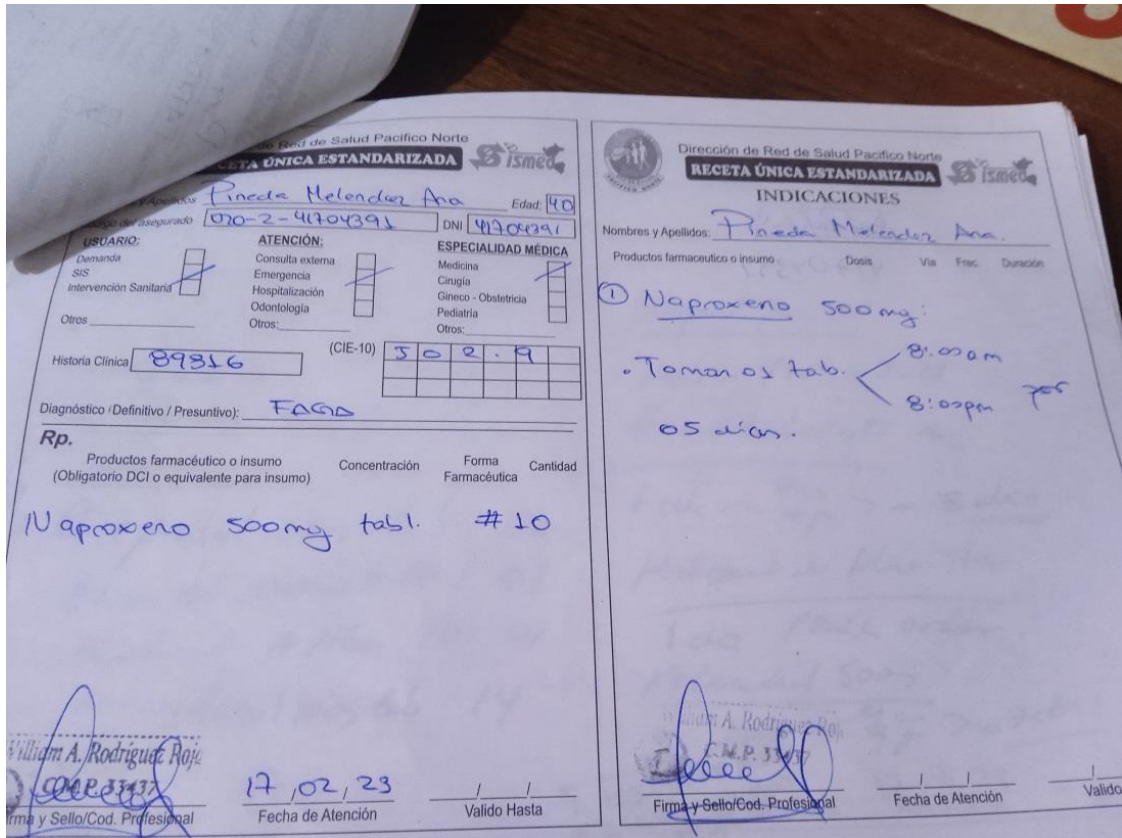 de Red de Salud Pacifico Norte
RECETA ÚNICA ESTANDARIZADA
ismed
y Apellidos Pineda Melendez Ana Edad: 40
del asegurado 020-2-41704391 DNI 41704391
USUARIO:
Demanda
SIS
Intervención Sanitaria
Otros
ATENCIÓN:
Consulta externa
Emergencia
Hospitalización
Odontologia
Otros:
ESPECIALIDAD MÉDICA
Medicina
Cirugía
Gineco - Obstetricia
Pediatria
Otros:
Historia Clínica 89316 (CIE-10) J02.9
Diagnóstico (Definitivo / Presuntivo): FAGA
Rp.
Productos farmacéutico o insumo
(Obligatorio DCI o equivalente para insumo)
Concentración
Forma
Farmacéutica
Cantidad
Naproxeno 500mg tabl. #10
William A. Rodríguez Roja
C.M.P. 33437
Firma y Sello/Cod. Profesional
17,02,23
Fecha de Atención
Valido Hasta
Dirección de Red de Salud Pacifico Norte
RECETA ÚNICA ESTANDARIZADA
ismed
PACIFICO NORTE
INDICACIONES
Nombres y Apellidos: Pineda Melendez Ana.
Productos farmaceutico o insumo Dosis Via Frec. Duración
① Naproxeno 500mg:
. Tomar 01 tab. 8:00am
8:00pm por
05 días.
A. Rodríguez Roj
C.M.P. 33437
Firma y Sello/Cod. Profesional
Fecha de Atención
Valido